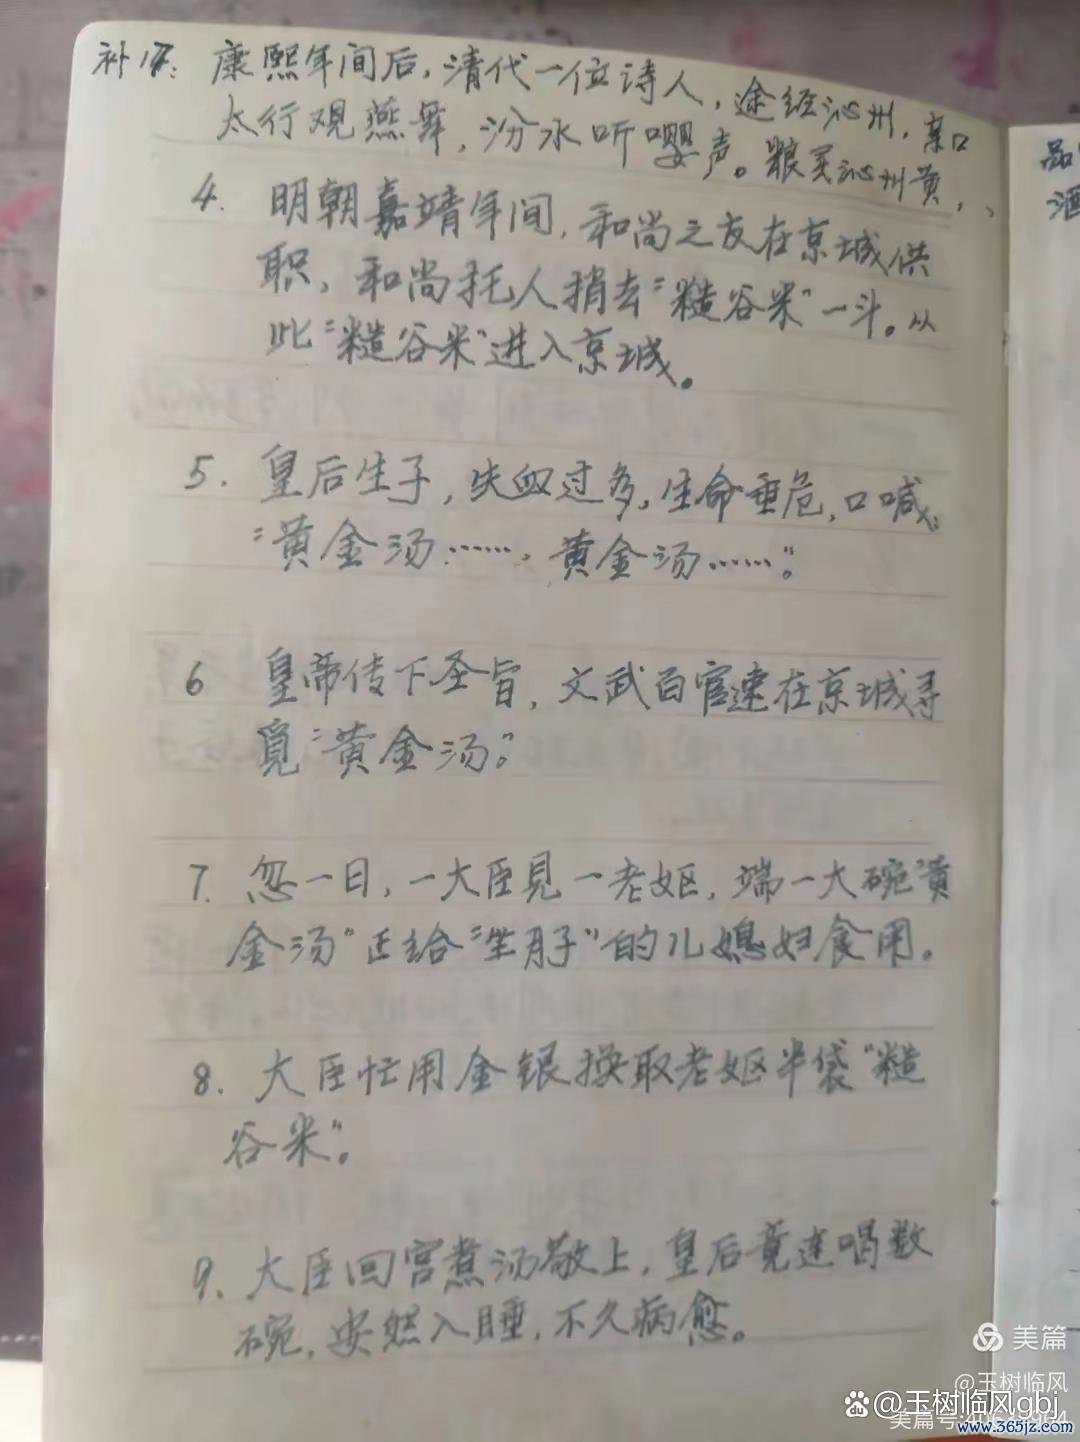 补17: 康熙年间后，清代一位诗人，途经沁州，亲口
太行观燕舞，汾水听嘤声。粮买沁州黄，
4. 明朝嘉靖年间，和尚之友在京城供
职，和尚托人捎去“糙谷米”一斗。从
此“糙谷米”进入京城。
5. 皇后生子，失血过多，生命垂危，口喊：
“黄金汤……，黄金汤……”。
6 皇帝传下圣旨，文武百官速在京城寻
觅“黄金汤”。
7. 忽一日，一大臣见一老妪，端一大碗“黄
金汤”正给“坐月子”的儿媳妇食用。
8. 大臣忙用金银换取老妪半袋“糙
谷米”。
9. 大臣回宫煮汤敬上，皇后竟连喝数
碗，安然入睡，不久病愈。
品
酒
美篇
@玉树临风
Bai du @玉树临风gbj
美篇号:
www.365jz.com